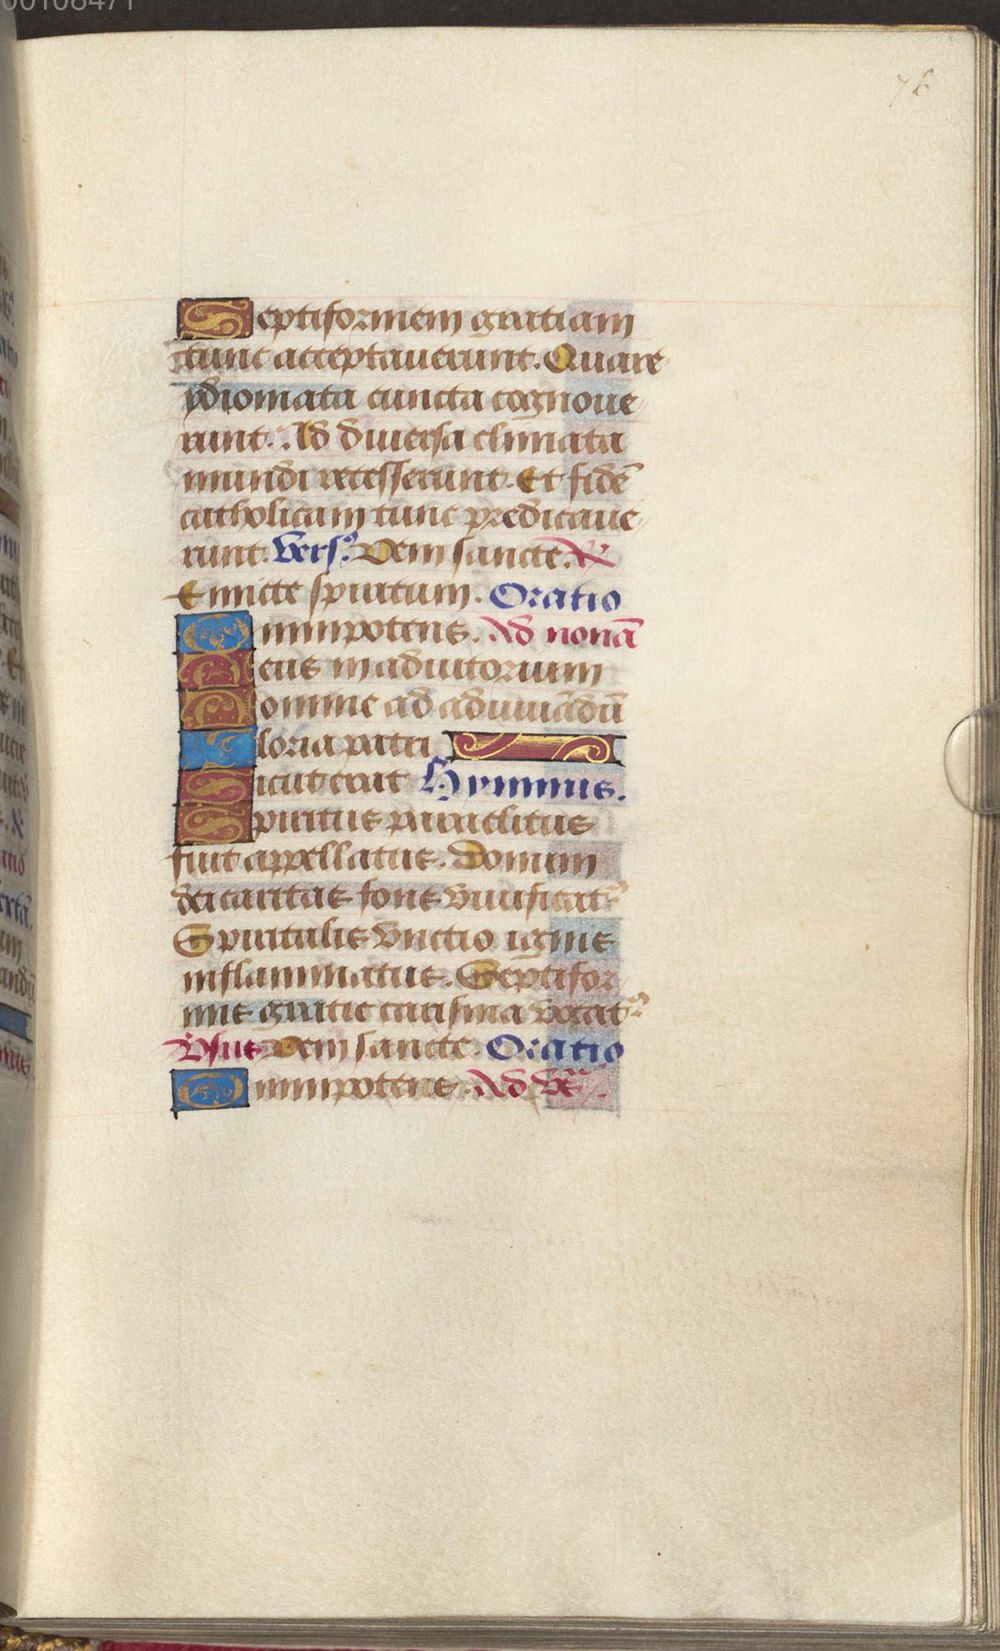 00108471
76
Septiformem gratiam
tunc acceptauerunt. Quare
ydiomata cuncta cognoue
runt. Ad diuersa climata
mundi recesserunt. Et fidē
catholicam tunc predicaue
runt. Vers9. Veni sancte. R
Emitte spiritum. Oratio
Omnipotens. Ad nonā
Deus in adiutorium
Domine ad adiuuādū
Gloria patri
Sicut erat Hymnus.
Spiritus paraclitus
fuit appellatus. Donum
dei caritas fons viuificat9
Spiritalis vnctio ignis
inflammatus. Septifor
mis gratie carisma vocat9
Vsus Veni sancte. Oratio
Omnipotens. Ad